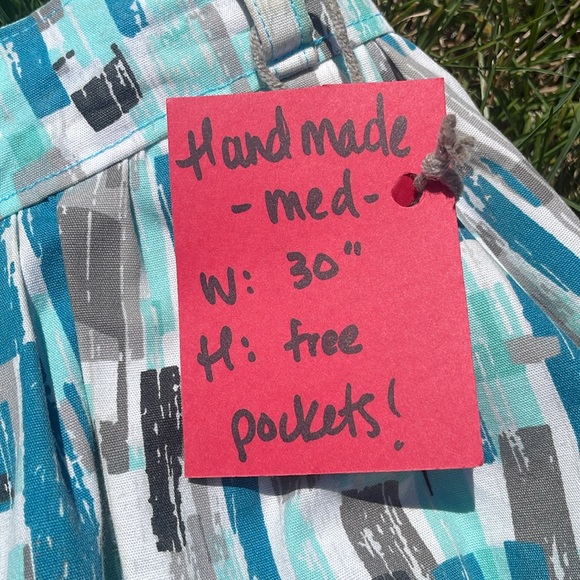 Handmade
- med -
W: 30"
H: free
pockets!